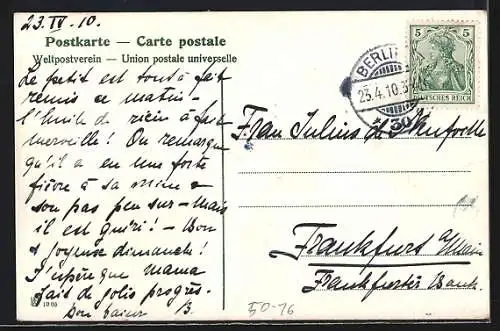 23.IV.10.
Postkarte — Carte postale
Weltpostverein — Union postale universelle
Le petit est tout à fait
remis ce matin –
l'huile de ricin a fait
merveille! On remarque
qu'il a eu une forte
fièvre à sa mine &
son pas peu sur – Mais
il est guéri! – Bon
& joyeux dimanche!
J'espère que Mama
fait de jolis progrès.
Bon baiser B.
5 5
DEUTSCHES REICH
BERLIN
23.4.10.3
* 30
Frau Julius de Neufville
Frankfurt a/Main
Frankfurter Bank.
50-16